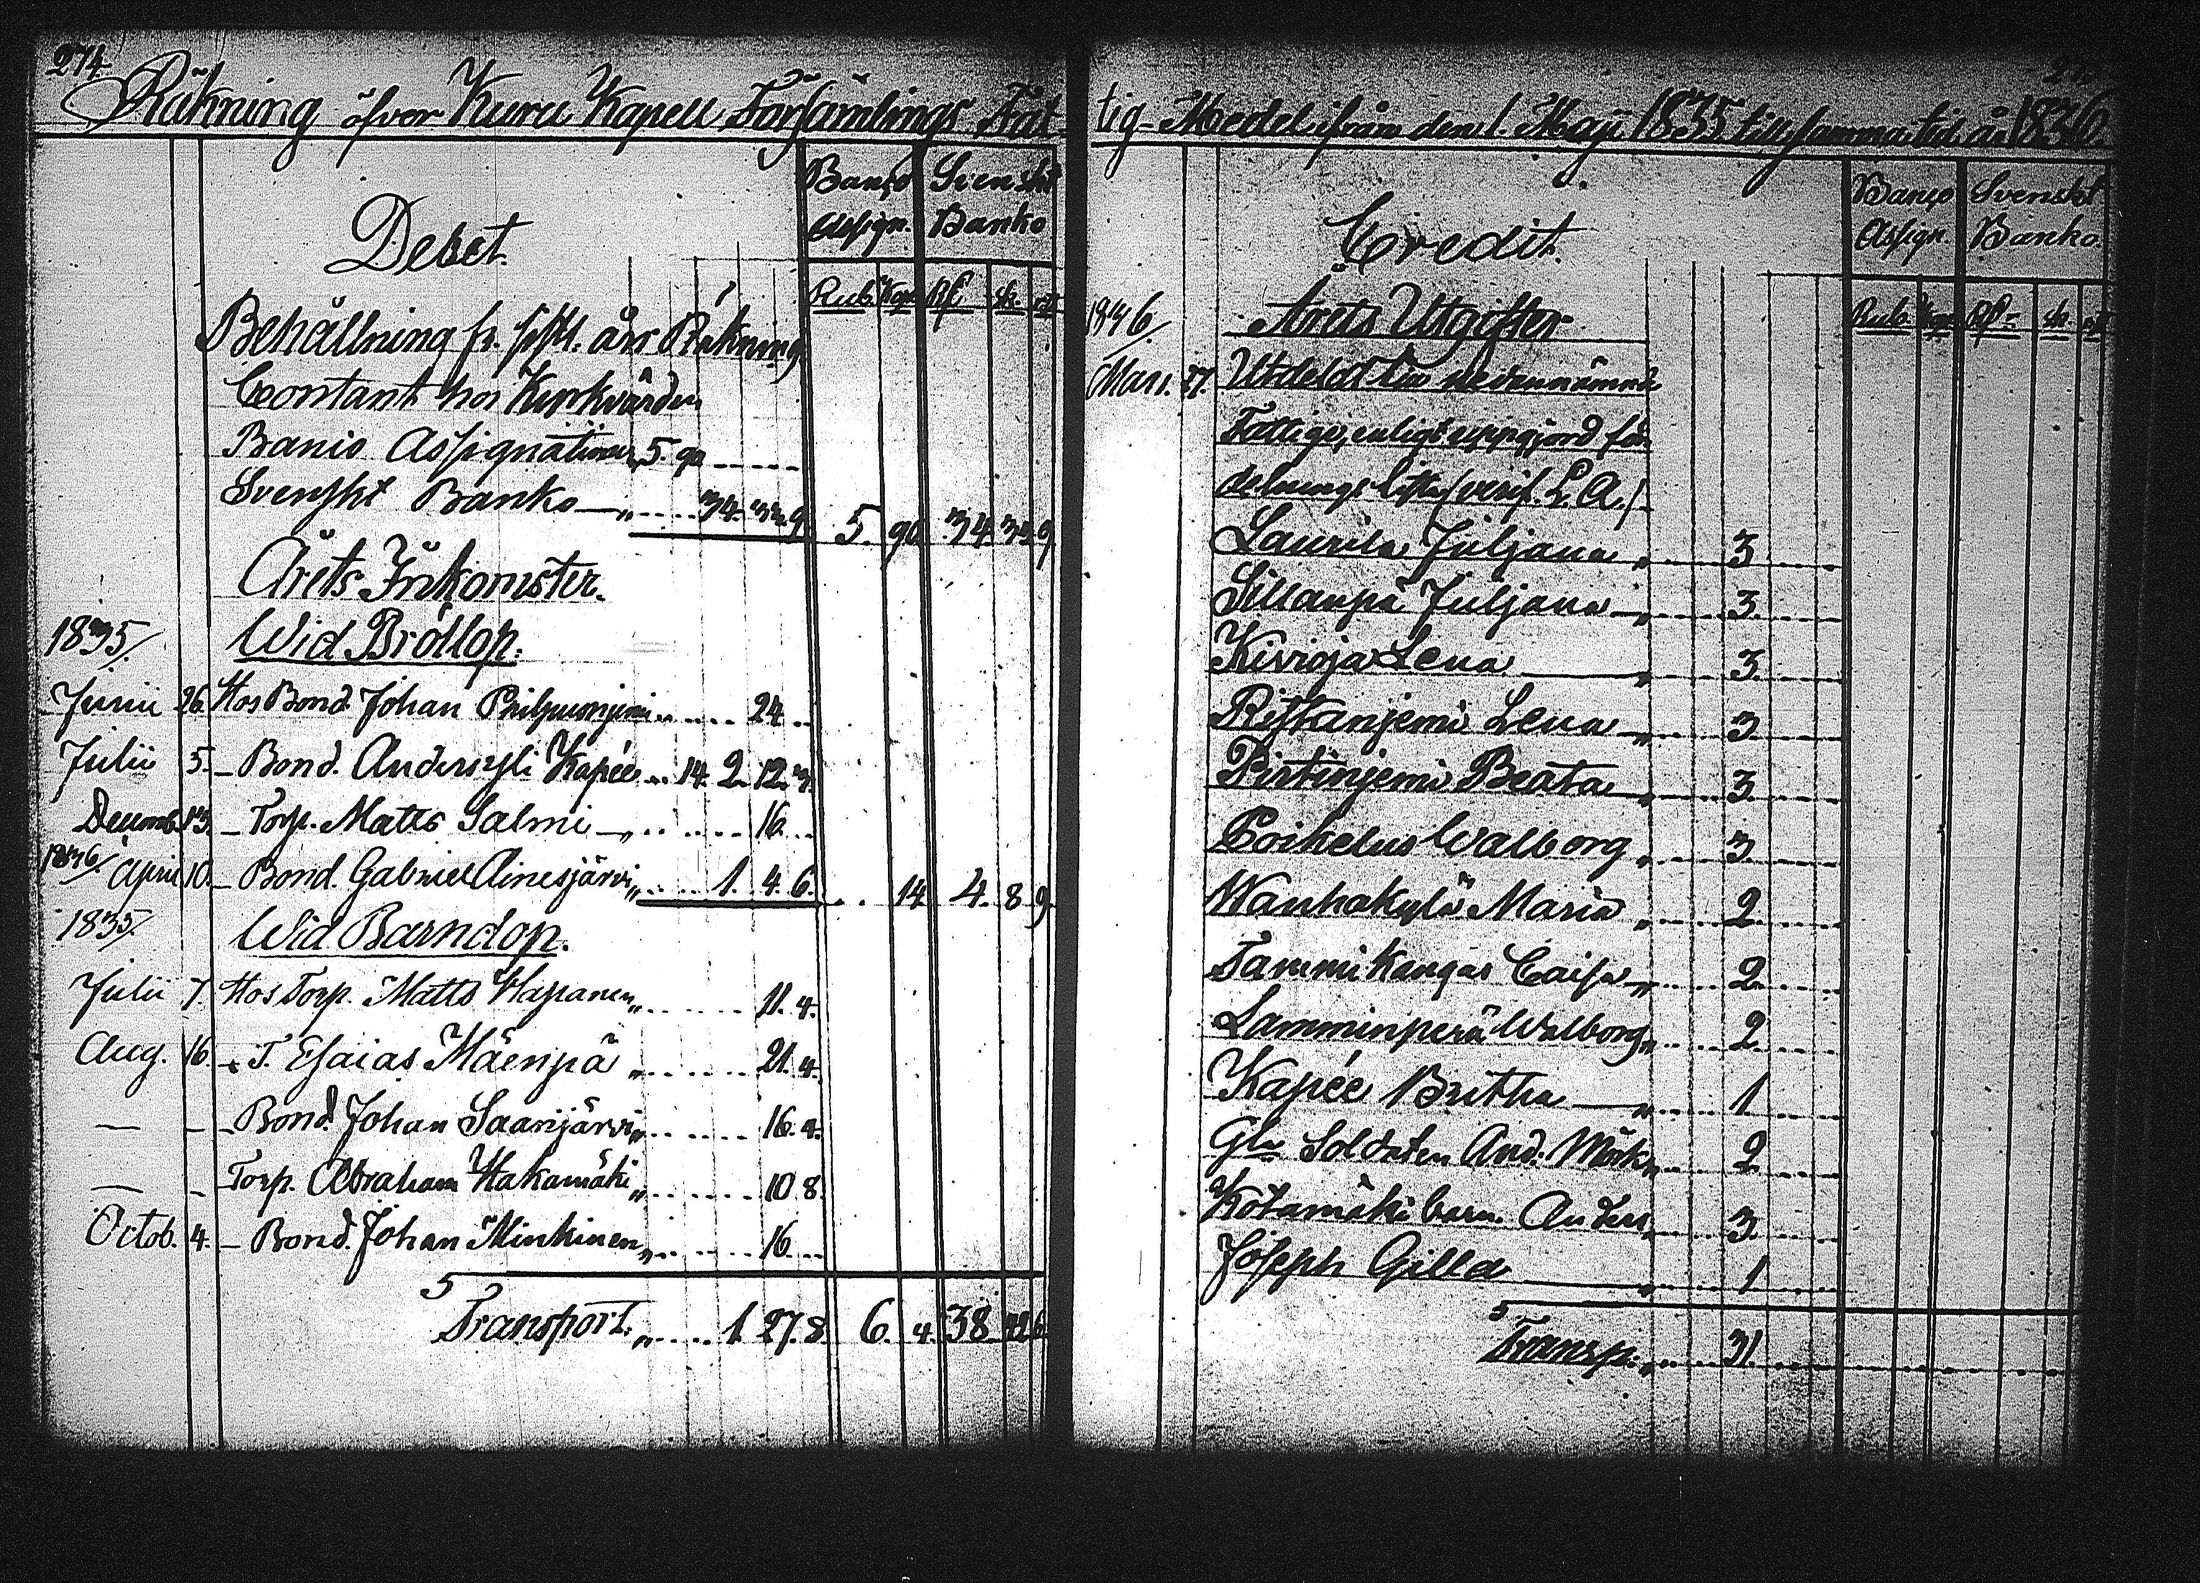 274.
Räkning öfver Kuru Kapell Församlings Fat-
Debet.
Banco Assign.
Svenskt Banko
Rub. Kop. Rf sk. rst
Behållning fr. sistl. års Räkning
Contant hos Kyrkvärden
Banco Assignationer 5. 90
Svenskt Banko 34. 32. 9 5. 90. 34. 32. 9
Årets Inkomster.
1835/. Wid Bröllop.
Junii 26. Hos Bond. Johan Philpunjemi 24
Julii 5. Bond. Anders yli Kapée 14. 2. 12. 3.
Decemb. 13. Torp. Matts Salmi 16.
1836/. April 10. Bond. Gabriel Ainesjärvi 1. 4. 6. 14 4. 8 9
1835/. Wid Barndop.
Julii 7. Hos Torp. Matts Hapanen 11. 4.
Aug. 16. T. Esaias Mäenpä 21. 4.
— - Bond. Johan Saarijärvi 16. 4.
— - Torp. Abraham Hakamäki 10 8.
Octob. 4. Bond. Johan Minkinen 16
Transport. 1. 27. 8. 6. 4. 38 6
tig-Medel ifrån den 1. Maji 1835 till samma tid år 1836.
Credit.
Banco Assign.
Svenskt Banko.
Rub. Kop. Rf sk. rst
1836/. Årets Utgifter
Mars. 27. Utdelat till nedannämnde
Fattige, enligt uppgjord för-
delnings lista (verif. L. A.)
Laurila Juljana 3
Sillanpä Juljana 3.
Kivioja Lena 3.
Riskanjemi Lena 3
Pirtinjemi Beata 3.
Poikelus Walborg 3
Wanhakylä Maria 2
Tammikangas Caisa 2.
Lamminperä Walborg 2
Kapée Britha 1
Gla Soldaten And. Mörk 2
Kotamäki barn. Anders 3.
Joseph Gilla 1
Transp. 31.